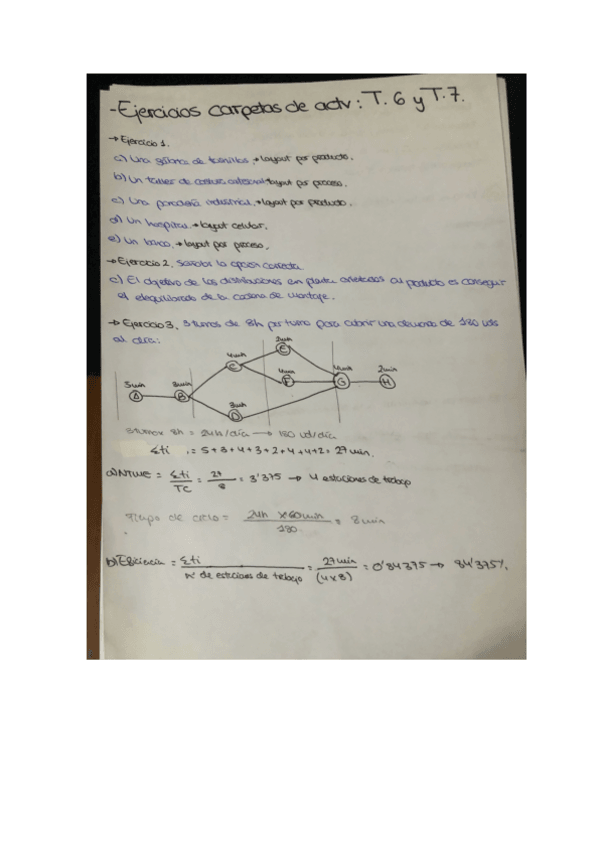 -Ejercicios carpetas de activ: T. 6 y T.7.
→ Ejercicio 1.
a) Una fábrica de tornillos → layout por producto.
b) Un taller de costura artesanal → layout por proceso.
c) Una panadería industrial → layout por producto.
d) Un hospital → layout celular.
e) Un banco → layout por proceso.
→ Ejercicio 2. Señala la opción correcta
c) El objetivo de las distribuciones en planta orientadas al producto es conseguir
el equilibrado de la cadena de montaje.
→ Ejercicio 3. 3 turnos de 8h por turno para cubrir una demanda de 180 uds
al día:
2min
4min E
C
5min 3min 4min 4min 2min
A B F G H
3min
D
3 turnos x 8h = 24h/día → 180 ud/día
Σti = 5+3+4+3+2+4+4+2 = 27 min.
a) NTME = Σti / TC = 27 / 8 = 3'375 → 4 estaciones de trabajo
Tiempo de ciclo = 24h x 60min / 180 = 8 min
b) Eficiencia = Σti / nº de estaciones de trabajo = 27 min / (4 x 8) = 0'84375 → 84'375%